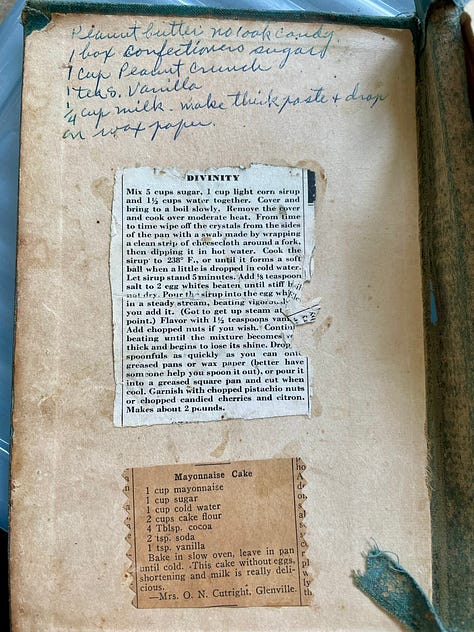 Peanut butter no cook candy
1 box confectioners sugar
1 cup Peanut Crunch
1 teas. Vanilla
1/4 cup milk. make thick paste & drop
on wax paper.
DIVINITY
Mix 5 cups sugar, 1 cup light corn sirup
and 1½ cups water together. Cover and
bring to a boil slowly. Remove the cover
and cook over moderate heat. From time
to time wipe off the crystals from the sides
of the pan with a swab made by wrapping
a clean strip of cheesecloth around a fork,
then dipping it in hot water. Cook the
sirup to 238° F., or until it forms a soft
ball when a little is dropped in cold water.
Let sirup stand 5 minutes. Add ⅛ teaspoon
salt to 2 egg whites beaten until stiff
not dry. Pour the sirup into the egg
in a steady stream, beating vigorously
you add it. (Got to get up steam at
point.) Flavor with 1½ teaspoons
Add chopped nuts if you wish.
beating until the mixture becomes
thick and begins to lose its shine. Drop
spoonfuls as quickly as you can
greased pans or wax paper (better have
someone help you spoon it out), or pour it
into a greased square pan and cut when
cool. Garnish with chopped pistachio nuts
or chopped candied cherries and citron.
Makes about 2 pounds.
Mayonnaise Cake
1 cup mayonnaise
1 cup sugar
1 cup cold water
2 cups cake flour
4 Tblsp. cocoa
2 tsp. soda
1 tsp. vanilla
Bake in slow oven, leave in pan
until cold. This cake without eggs,
shortening and milk is really deli-
cious.
—Mrs. O. N. Cutright, Glenville